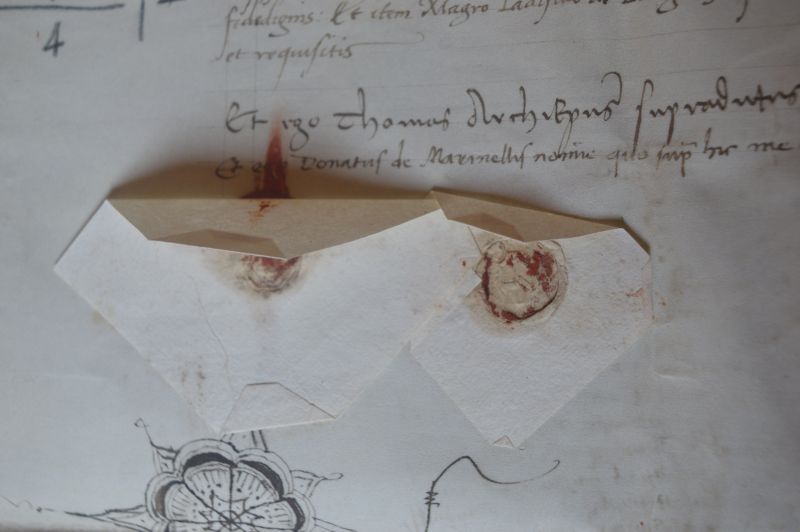 4
fidedignis: Et item Magro Ladislao de
et requisitis
Et ego Thomas ArchiEpus supradictus
Et ego Donatus de Marinellis nomine quo sup hic me